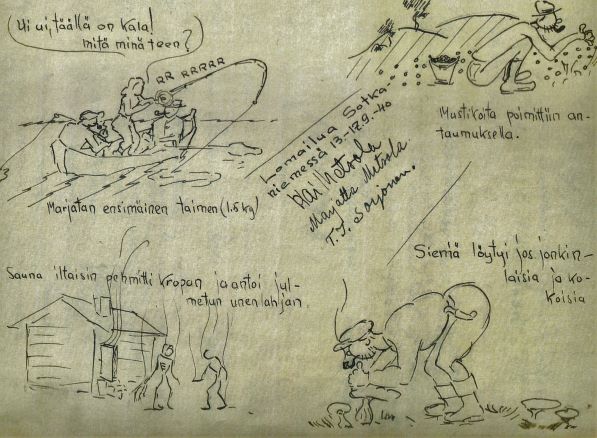 Ui ui, täällä on kala!
mitä minä teen?
RR RRRRR
Marjatan ensimäinen taimen (1.5 kg)
Lomailua Sotka-
niemessä 13.-17.9.-40
Kai Metsola
Marjatta Metsola.
T.T. Sorjonen.
Mustikoita poimittiin an-
taumuksella.
Sauna iltaisin pehmitti kropan ja antoi jul-
metun unenlahjan
Sieniä löytyi jos jonkin-
laisia ja ko-
koisia